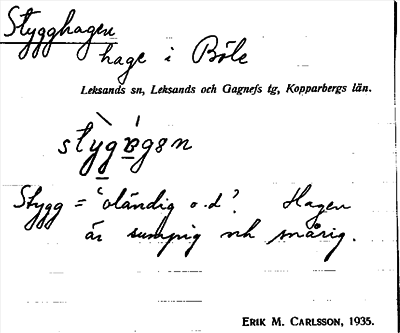 Stygghagen
hage i Böle
Leksands sn, Leksands och Gagnefs tg, Kopparbergs län.
Stygg = 'oländig o.d'. Hagen
är sumpig och snårig.
ERIK M. CARLSSON, 1935.